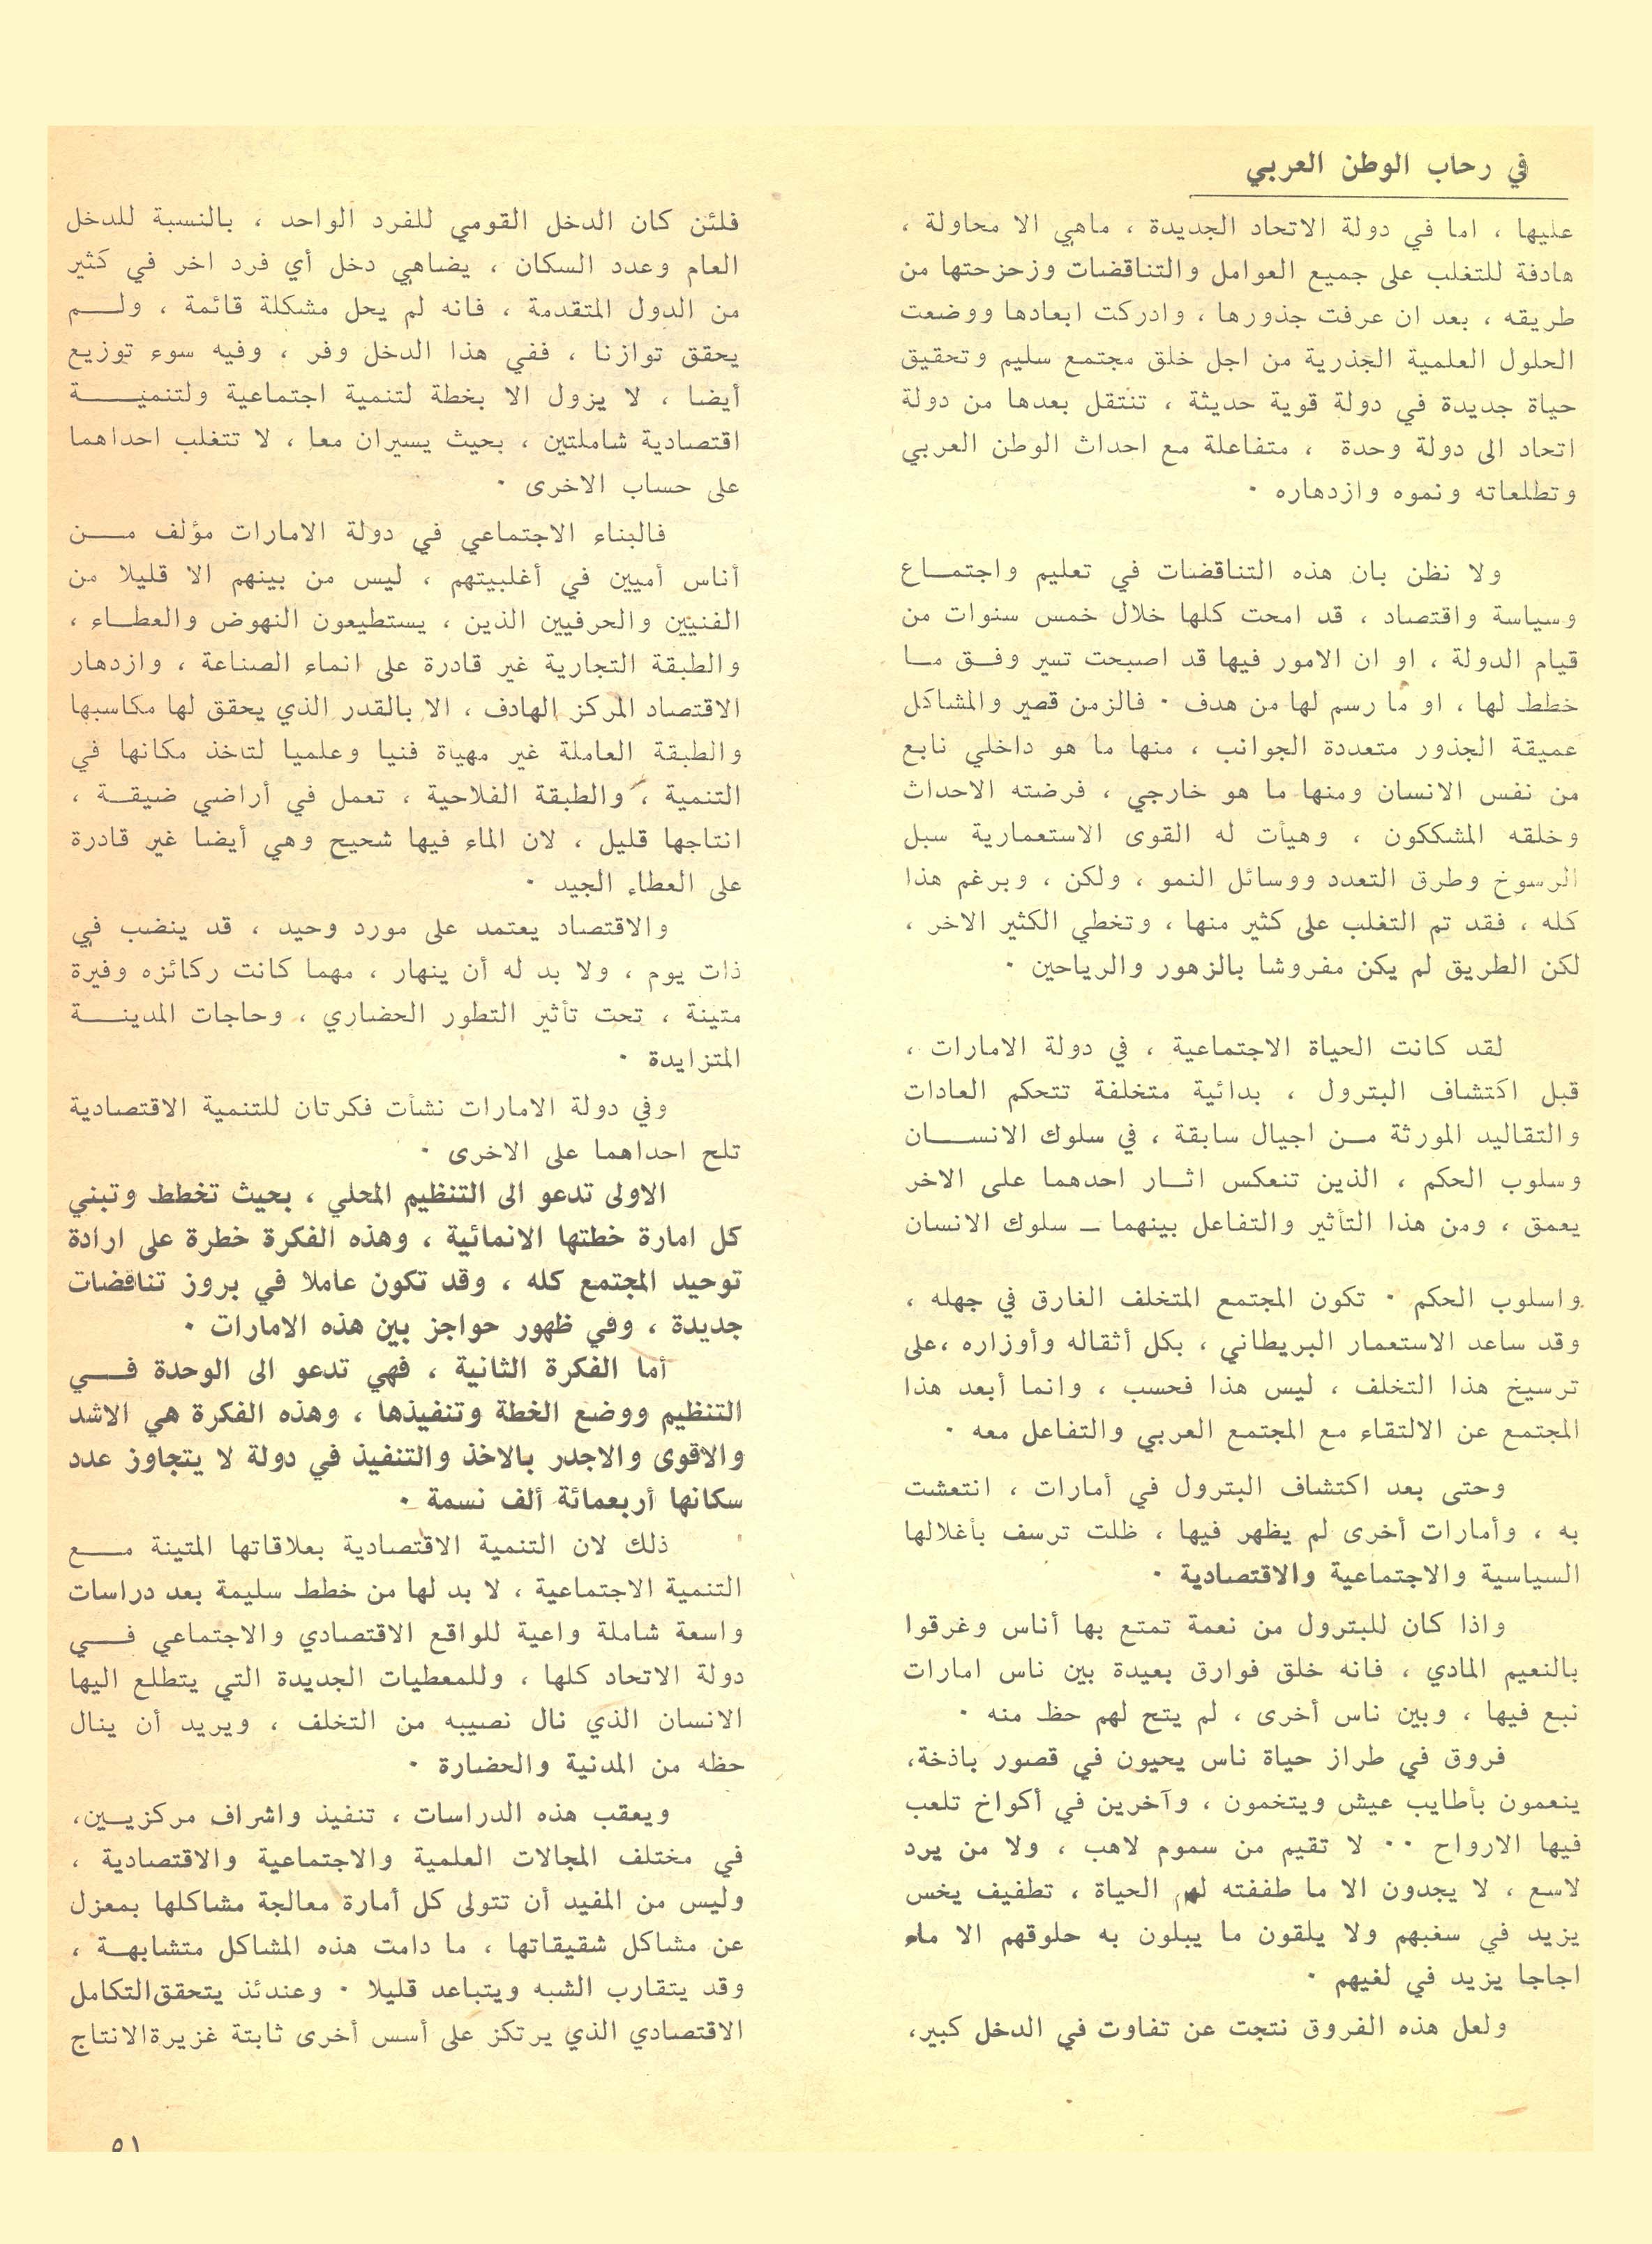 في رحاب الوطن العربي
عليها ، اما في دولة الاتحاد الجديدة ، ماهي الا محاولة ،
هادفة للتغلب على جميع العوامل والتناقضات وزحزحتها من
طريقه ، بعد ان عرفت جذورها ، وادركت ابعادها ووضعت
الحلول العلمية الجذرية من اجل خلق مجتمع سليم وتحقيق
حياة جديدة في دولة قوية حديثة ، تنتقل بعدها من دولة
اتحاد الى دولة وحدة ، متفاعلة مع احداث الوطن العربي
وتطلعاته ونموه وازدهاره ٠
ولا نظن بان هذه التناقضات في تعليم واجتمـاع
وسياسة واقتصاد ، قد امحت كلها خلال خمس سنوات من
قيام الدولة ، او ان الامور فيها قد اصبحت تسير وفـق مـا
خطط لها ، او ما رسم لها من هدف ٠ فالزمن قصير والمشاكل
عميقة الجذور متعددة الجوانب ، منها ما هو داخلي نابع
من نفس الانسان ومنها ما هو خارجي ، فرضته الاحداث
وخلقه المشككون ، وهيأت له القوى الاستعمارية سبل
الرسوخ وطرق التعدد ووسائل النمو ، ولكن ، وبرغم هذا
كله ، فقد تم التغلب على كثير منها ، وتخطي الكثير الاخر ،
لكن الطريق لم يكن مفروشا بالزهور والرياحين ٠
لقد كانت الحياة الاجتماعية ، في دولة الامارات ،
قبل اكتشاف البترول ، بدائية متخلفة تتحكم العادات
والتقاليد المورثة مـن اجيال سابقة ، في سلوك الانســان
وسلوب الحكم ، الذين تنعكس اثـار احدهما على الاخر
يعمق ، ومن هذا التأثير والتفاعل بينهما ـ سلوك الانسان
واسلوب الحكم ٠ تكون المجتمع المتخلف الغارق في جهله ،
وقد ساعد الاستعمار البريطاني ، بكل أثقاله وأوزاره ،على
ترسيخ هذا التخلف ، ليس هذا فحسب ، وانما أبعد هذا
المجتمع عن الالتقاء مع المجتمع العربي والتفاعل معه ٠
وحتى بعد اكتشاف البترول في أمارات ، انتعشت
به ، وأمارات أخرى لم يظهر فيها ، ظلت ترسف بأغلالها
السياسية والاجتماعية والاقتصادية ٠
واذا كان للبترول من نعمة تمتع بها أناس وغرقوا
بالنعيم المادي ، فانه خلق فوارق بعيدة بين ناس امارات
نبع فيها ، وبين ناس أخرى ، لم يتح لهم حظ منه ٠
فروق في طراز حياة ناس يحيون في قصور باذخة،
ينعمون بأطايب عيش ويتخمون ، وآخرين في أكواخ تلعب
فيها الارواح ٠٠ لا تقيم من سموم لاهب ، ولا من يرد
لاسع ، لا يجدون الا ما طففته لهم الحياة ، تطفيف يخس
يزيد في سغبهم ولا يلقون ما يبلون به حلوقهم الا ماء
اجاجا يزيد في لغيهم ٠
ولعل هذه الفروق نتجت عن تفاوت في الدخل كبير،
فلئن كان الدخل القومي للفرد الواحد ، بالنسبة للدخل
العام وعدد السكان ، يضاهي دخل أي فرد اخر في كثير
من الدول المتقدمة ، فانه لم يحل مشكلة قائمة ، ولــم
يحقق توازنا ، ففي هذا الدخل وفر ، وفيه سوء توزيع
أيضا ، لا يزول الا بخطة لتنمية اجتماعية ولتنميــة
اقتصادية شاملتين ، بحيث يسيران معا ، لا تتغلب احداهما
على حساب الاخرى ٠
فالبناء الاجتماعي في دولة الامارات مؤلف مــن
أناس أميين في أغلبيتهم ، ليس من بينهم الا قليلا من
الفنيين والحرفيين الذين ، يستطيعون النهوض والعطـاء ،
والطبقة التجارية غير قادرة على انماء الصناعة ، وازدهار
الاقتصاد المركز الهادف ، الا بالقدر الذي يحقق لها مكاسبها
والطبقة العاملة غير مهياة فنيا وعلميا لتاخذ مكانها في
التنمية ، والطبقة الفلاحية ، تعمل في أراضي ضيقـة ،
انتاجها قليل ، لان الماء فيها شحيح وهي أيضا غير قادرة
على العطاء الجيد ٠
والاقتصاد يعتمد على مورد وحيد ، قد ينضب في
ذات يوم ، ولا بد له أن ينهار ، مهما كانت ركائزه وفيرة
متينة ، تحت تأثير التطور الحضاري ، وحاجات المدينــة
المتزايدة ٠
وفي دولة الامارات نشأت فكرتان للتنمية الاقتصادية
تلح احداهما على الاخرى ٠
الاولى تدعو الى التنظيم المحلي ، بحيث تخطط وتبني
كل امارة خطتها الانمائية ، وهذه الفكرة خطرة على ارادة
توحيد المجتمع كله ، وقد تكون عاملا في بروز تناقضات
جديدة ، وفي ظهور حواجز بين هذه الامارات ٠
أما الفكرة الثانية ، فهي تدعو الى الوحدة فــي
التنظيم ووضع الخطة وتنفيذها ، وهذه الفكرة هي الاشد
والاقوى والاجدر بالاخذ والتنفيذ في دولة لا يتجاوز عدد
سكانها أربعمائة ألف نسمة ٠
ذلك لان التنمية الاقتصادية بعلاقاتها المتينة مــع
التنمية الاجتماعية ، لا بد لها من خطط سليمة بعد دراسات
واسعة شاملة واعية للواقع الاقتصادي والاجتماعي فــي
دولة الاتحاد كلها ، وللمعطيات الجديدة التي يتطلع اليها
الانسان الذي نال نصيبه من التخلف ، ويريد أن ينال
حظه من المدنية والحضارة ٠
ويعقب هذه الدراسات ، تنفيذ واشراف مركزيـين،
في مختلف المجالات العلمية والاجتماعية والاقتصادية ،
وليس من المفيد أن تتولى كل أمارة معالجة مشاكلها بمعزل
عن مشاكل شقيقاتها ، ما دامت هذه المشاكل متشابهـة ،
وقد يتقارب الشبه ويتباعد قليلا ٠ وعندئذ يتحقق التكامل
الاقتصادي الذي يرتكز على أسس أخرى ثابتة غزيرة الانتاج
٥١